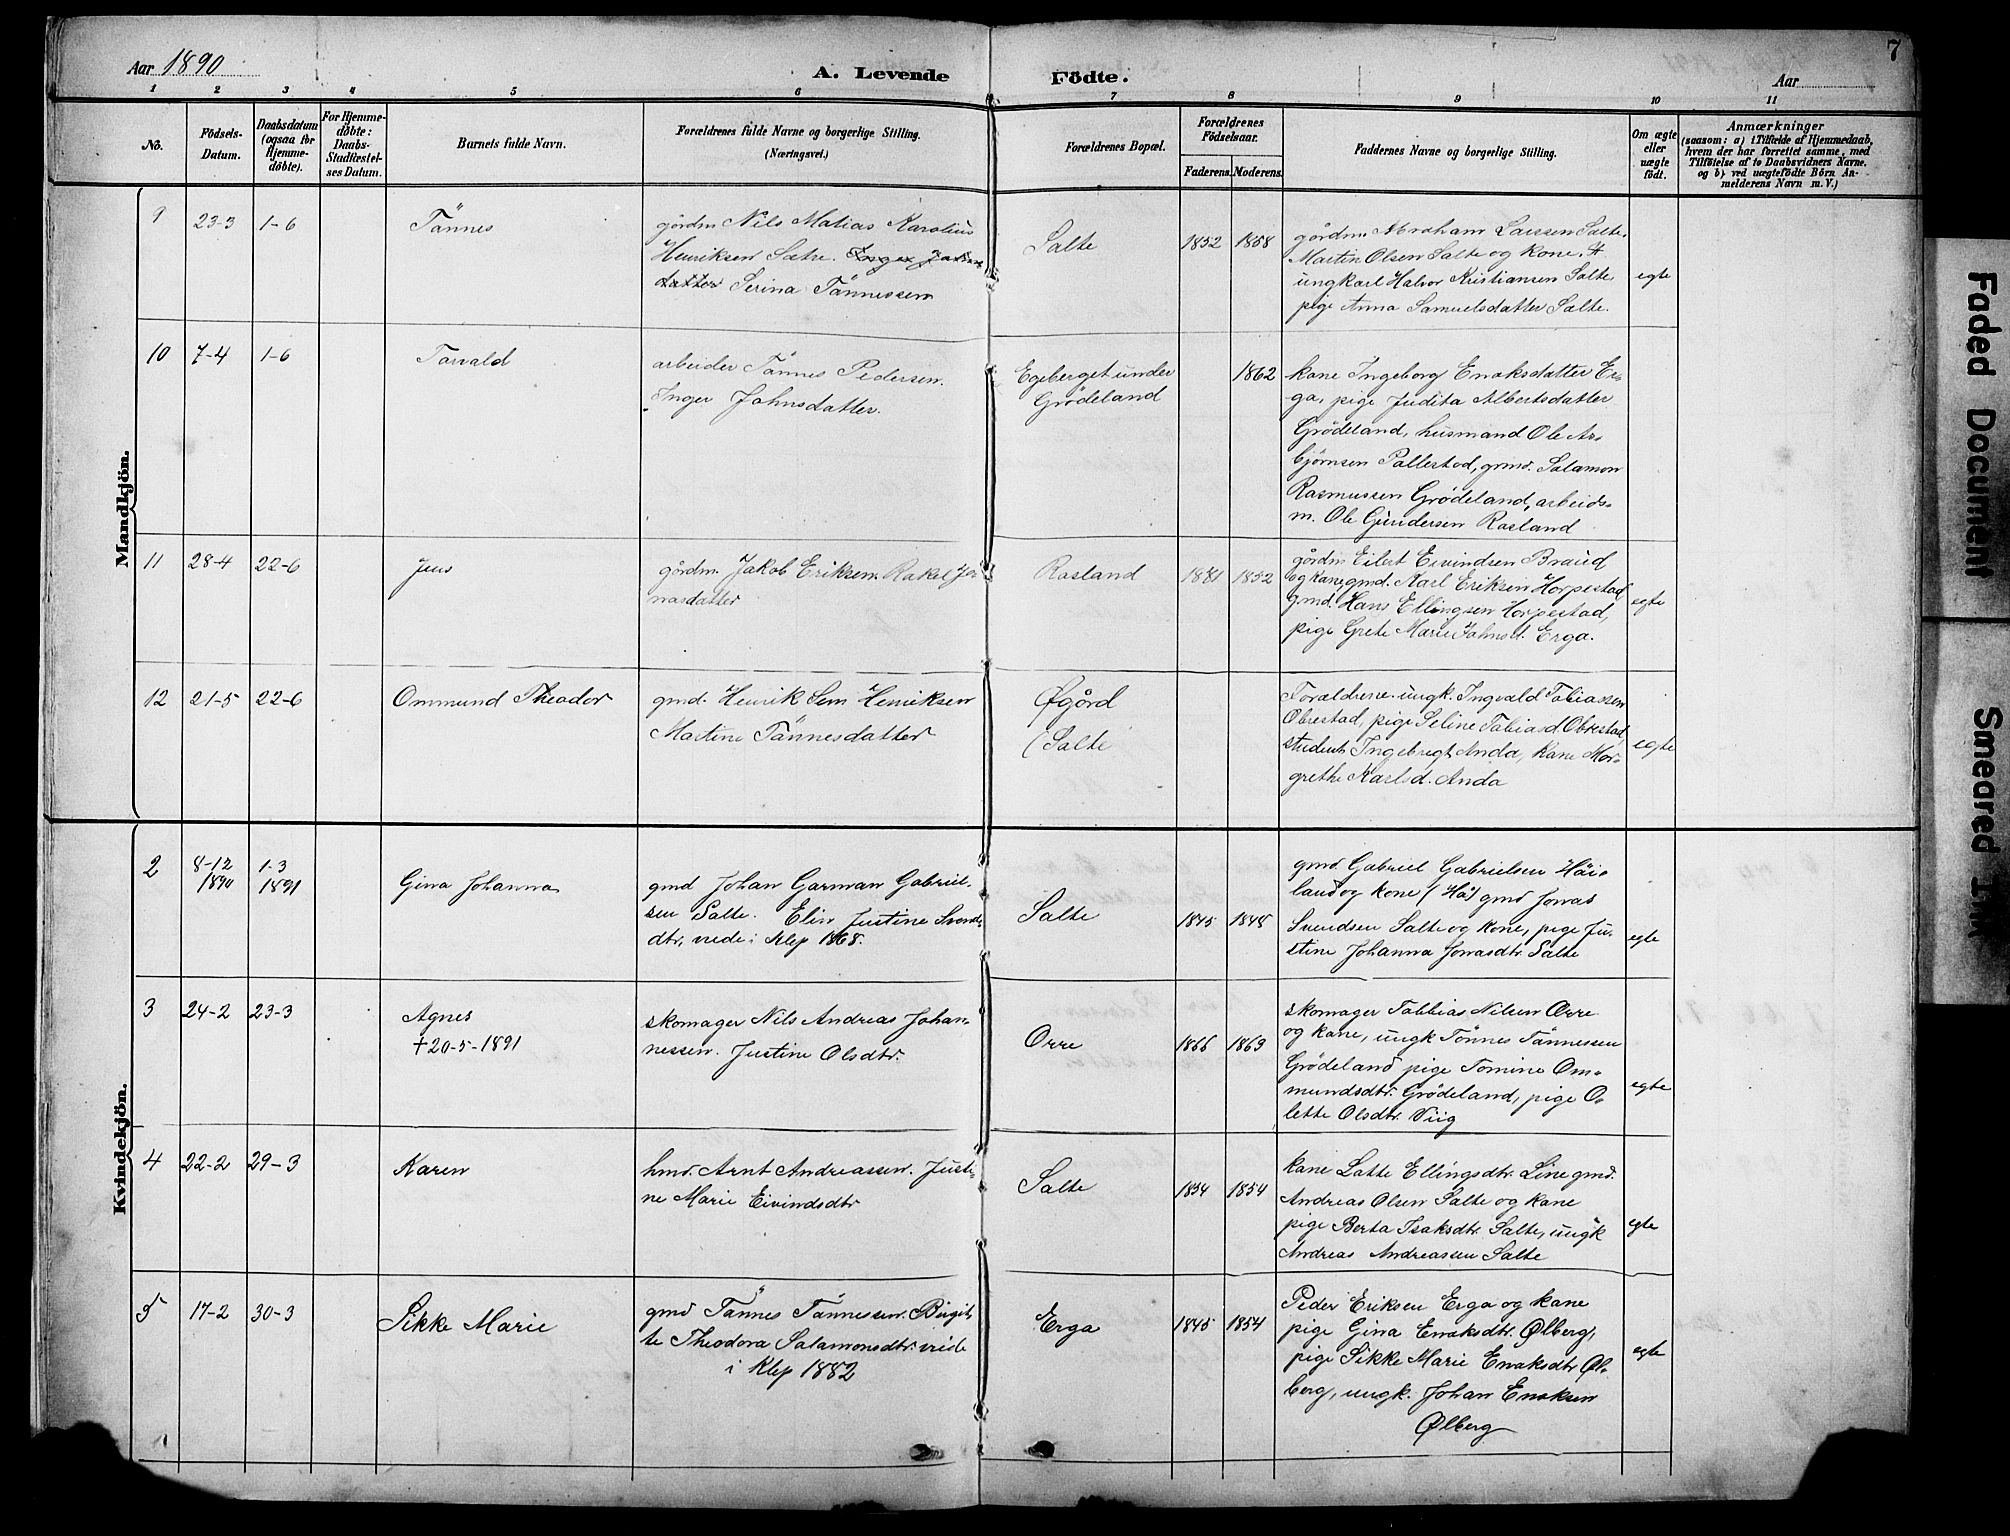 7
Aar 1890
A. Levende Födte.
Aar
1 2 3 4 5 6 7 8 9 10 11
No.
Födsels-
Datum.
Daabsdatum
(ogsaa for
Hjemme-
døbte).
For Hjemme-
døbte:
Daabs-
Stadfæstel-
ses Datum.
Barnets fulde Navn.
Forældrenes fulde Navne og borgerlige Stilling.
(Næringsvei.)
Forældrenes Bopæl.
Forældrenes
Födselsaar.
Faderens. Moderens.
Faddernes Navne og borgerlige Stilling.
Om ægte
eller
uægte
födt.
Anmærkninger
(saasom: a) i Tilfælde af Hjemmedaab,
hvem der har forrettet samme, med
Tilföielse af to Daabsvidners Navne.
og b) ved uægtefödte Börn An-
melderens Navn m. V.)
Mandkjön.
9 23-3 1-6 Tönnes
gårdm Nils Matias Karolius
Henriksen Sætre. Inger Johns
datter Serina Tönnessen
Salte 1852 1858
gårdm. Abraham Larssen Salte.
Martin Olsen Salte og kone.
ungkarl Halvor Kristiansen Salte
pige Anna Samuelsdatter Salte.
egte
10 7-4 1-6 Torvald
arbeider Tönnes Pedersen.
Inger Johnsdatter.
Egeberget under
Grödeland
1862
kone Ingeborg Enoksdatter Er-
ga, pige Judita Albertsdatter
Grödeland, husmand Ole As-
björnsen Pollestad, grmd. Salamon
Rasmussen Grödeland, arbeids-
m. Ole Gundersen Rosland
11 28-4 22-6 Jens
gårdm. Jakob Eriksen. Rakel Jo-
nasdatter
Rosland 1852
gårdm Eilert Eivindsen Braud
og kone gmd. Karl Eriksen Horpestad
gmd. Hans Ellingsen Horpestad,
pige Grete Marie Johnsd. Erga.
egte
12 21-5 22-6 Ommund Theodor
gmd. Henrik Sem Henriksen
Martine Tönnesdatter
Øgård
(Salte
Forældrene. ungk. Ingvald Tobiassen
Obrestad, pige Seline Tobiasd. Obrestad,
student Ingebregt Anda, kone Mar-
grethe Karlsd. Anda
egte
Kvindekjön.
2 8-12
1890
1-3
1891
Gina Johanna
gmd Johan Garman Gabriel-
sen Salte. Elin Justine Svends-
dtr, viede i Klep 1868.
Salte 1845 1848
gmd. Gabriel Gabrielsen Høi-
land og kone (Hå) gmd Jonas
Svendsen Salte og kone, pige Ju-
stine Johanna Jonasdtr. Salte
egte
3 24-2 23-3 Agnes
†20-5-1891
skomager Nils Andreas Johan-
nessen. Justine Olsdtr.
Orre 1866 1863
skomager Tobbias Nilsen Orre
og kone, ungk Tönnes Tönnessen
Grödeland pige Tomine Om-
mundsdtr. Grödeland, pige O-
lette Olsdtr. Viig
egte
4 22-2 29-3 Karen
hmd. Arnt Andreassen. Justi-
ne Marie Eivindsdtr
Salte 1854 1854
kone Lotte Ellingsdtr. Line gmd.
Andreas Olsen Salte og kone
pige Berta Isaksdtr. Salte, ungk
Andreas Andreassen Salte
egte
5 17-2 30-3 Sikke Marie
gmd Tönnes Tönnessen. Birgit-
te Theodora Salamonsdtr. viede
i Klep 1882
Erga 1845 1854
Peder Eriksen Erga og kone
pige Gina Enoksdtr. Ølberg,
pige Sikke Marie Enoksdtr Øl-
berg, ungk. Johan Enoksen
Ølberg
egte
Faded Document
Smeared Ink